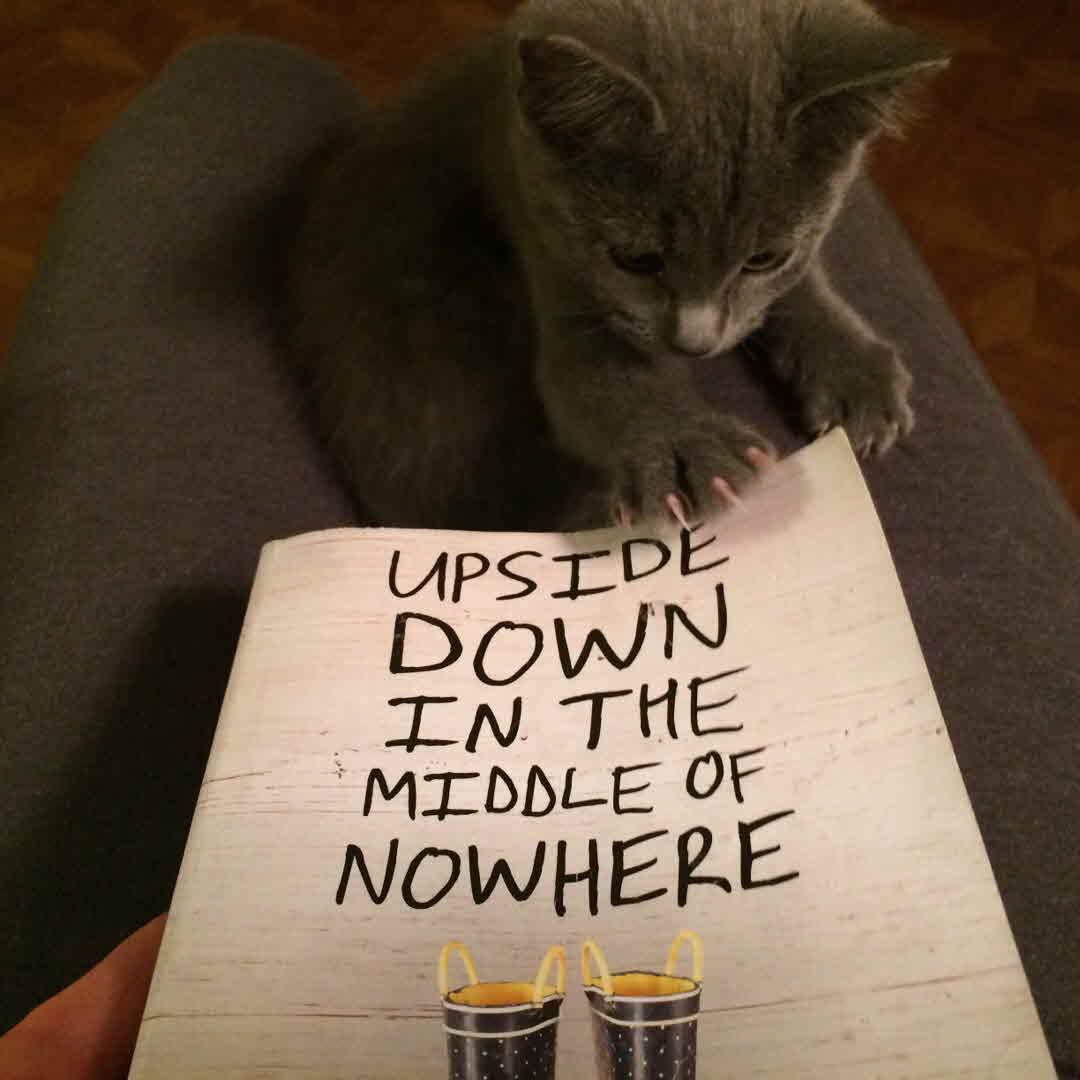 UPSIDE
DOWN
IN THE
MIDDLE OF
NOWHERE